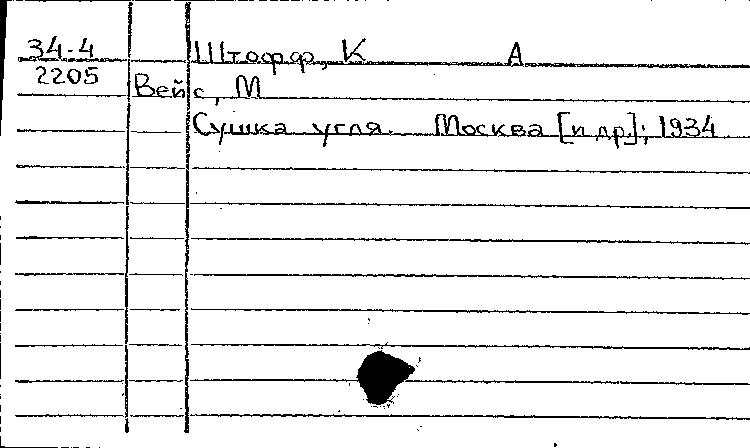 34-4 Штофф, К А
2205 Вейс, М
Сушка угля. Москва [и др.]; 1934